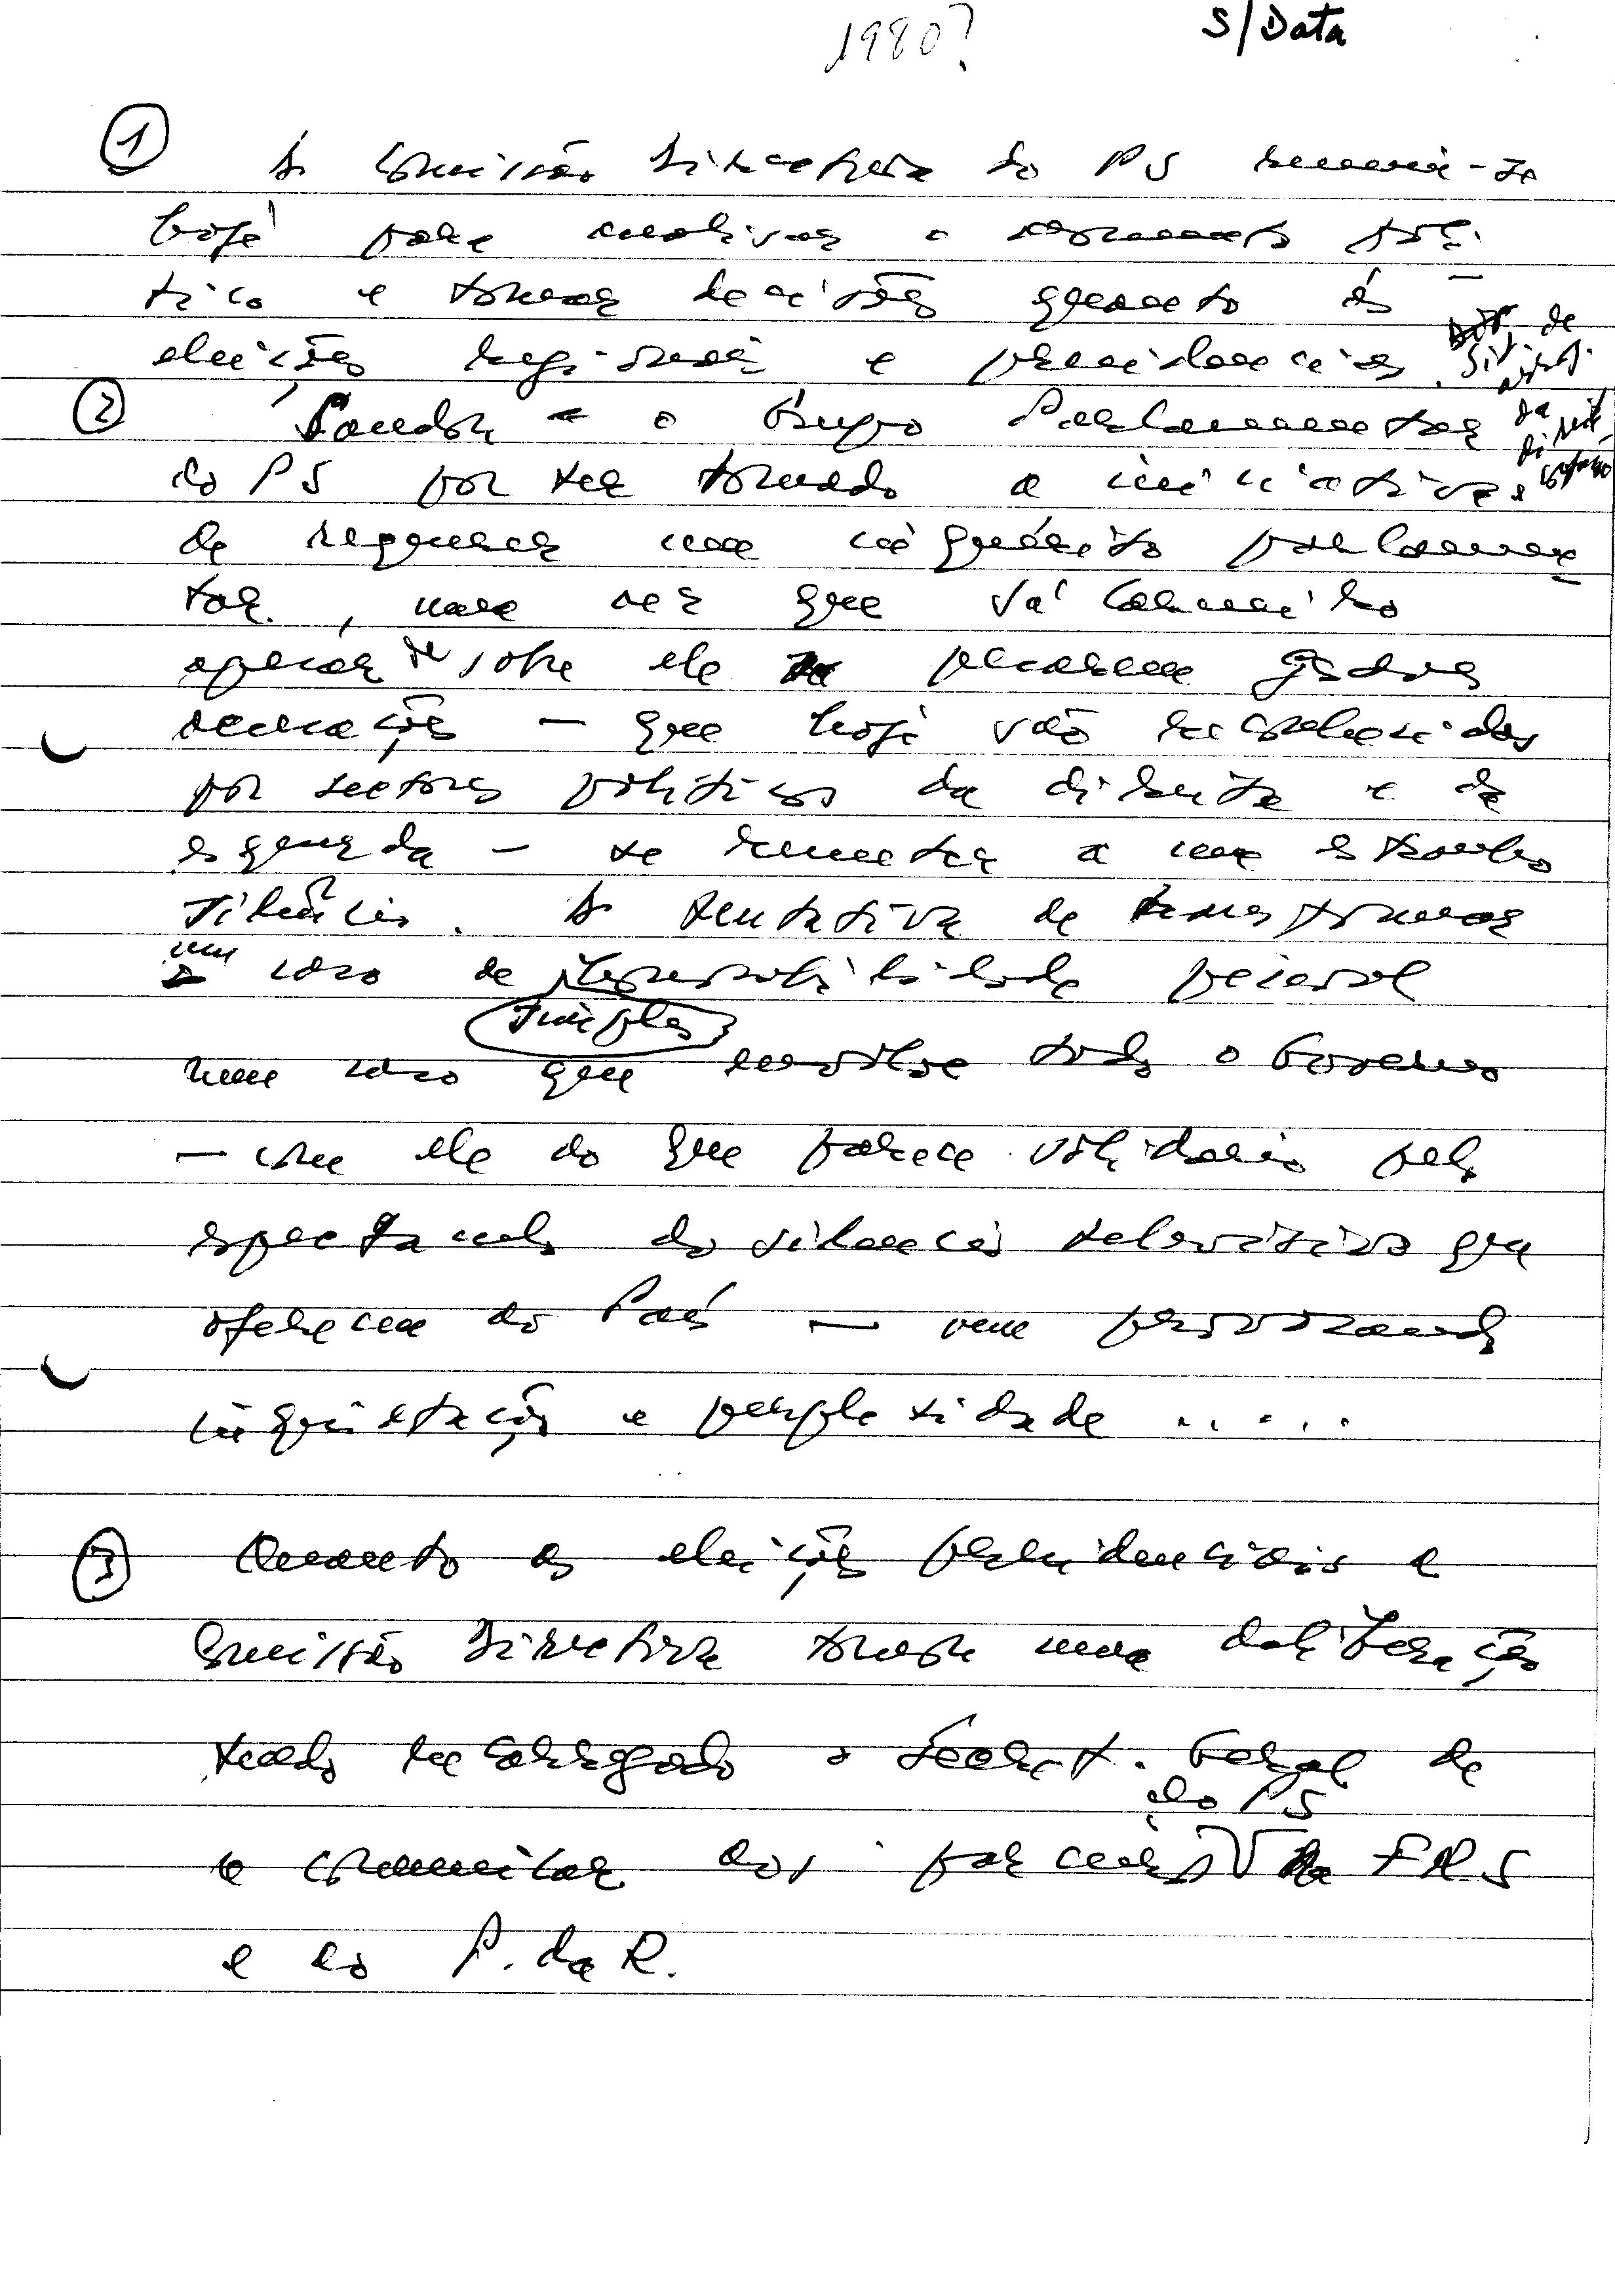 1980?
S/Data
① A Comissão Directiva do PS reuniu-se
hoje para analisar o momento polí-
tico e tomar decisões quanto às
eleições regionais e presidenciais.
② Saudou o Grupo Parlamentar
do PS por ter tomado a iniciativa
de requerer um inquérito parlamen-
tar, uma vez que Sá Carneiro
apesar de sobre ele pesarem graves
acusações — que hoje são reconhecidas
por sectores políticos da direita e da
esquerda — se remeter a um estranho
silêncio. A tentativa de transformar
um caso de responsabilidade pessoal
simples
num caso que envolve todo o Governo
— com ele ao que parece solidário pelo
espectáculo do silêncio televisivo que
ofereceu ao País — vem provocando
inquietação e perplexidade .....
③ Quanto às eleições presidenciais a
Comissão Directiva tomou uma deliberação
tendo encarregado o Secret. Geral de
do PS
a comunicar aos parceiros da FRS
e ao P. da R.